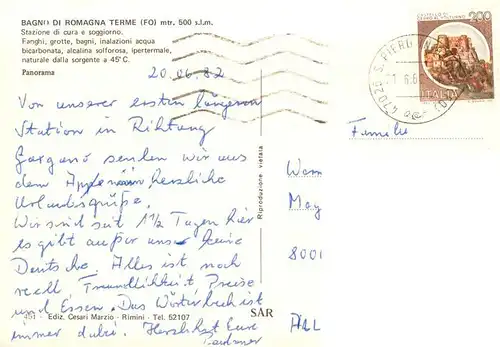 BAGNO DI ROMAGNA TERME (FO) mtr. 500 s.l.m.
Stazione di cura e soggiorno.
Fanghi, grotte, bagni, inalazioni acqua
bicarbonata, alcalina solforosa, ipertermale,
naturale dalla sorgente a 45°C.
Panorama
20.06.82
Von unserer ersten längeren
Station in Richtung
Gargano senden wir aus
dem Appennin herzliche
Urlaubsgrüße.
Wir sind seit 1 1/2 Tagen hier
es gibt außer uns keine
Deutsche. Alles ist noch
reell Freundlichkeit Preise
und Essen. Das Wörterbuch ist
immer dabei. Herzlichst Eure
451 - Ediz. Cesari Marzio - Rimini - Tel. 52107
SAR
Riproduzione vietata
200
ITALIA
47026 S. PIERO IN
Familie
8001